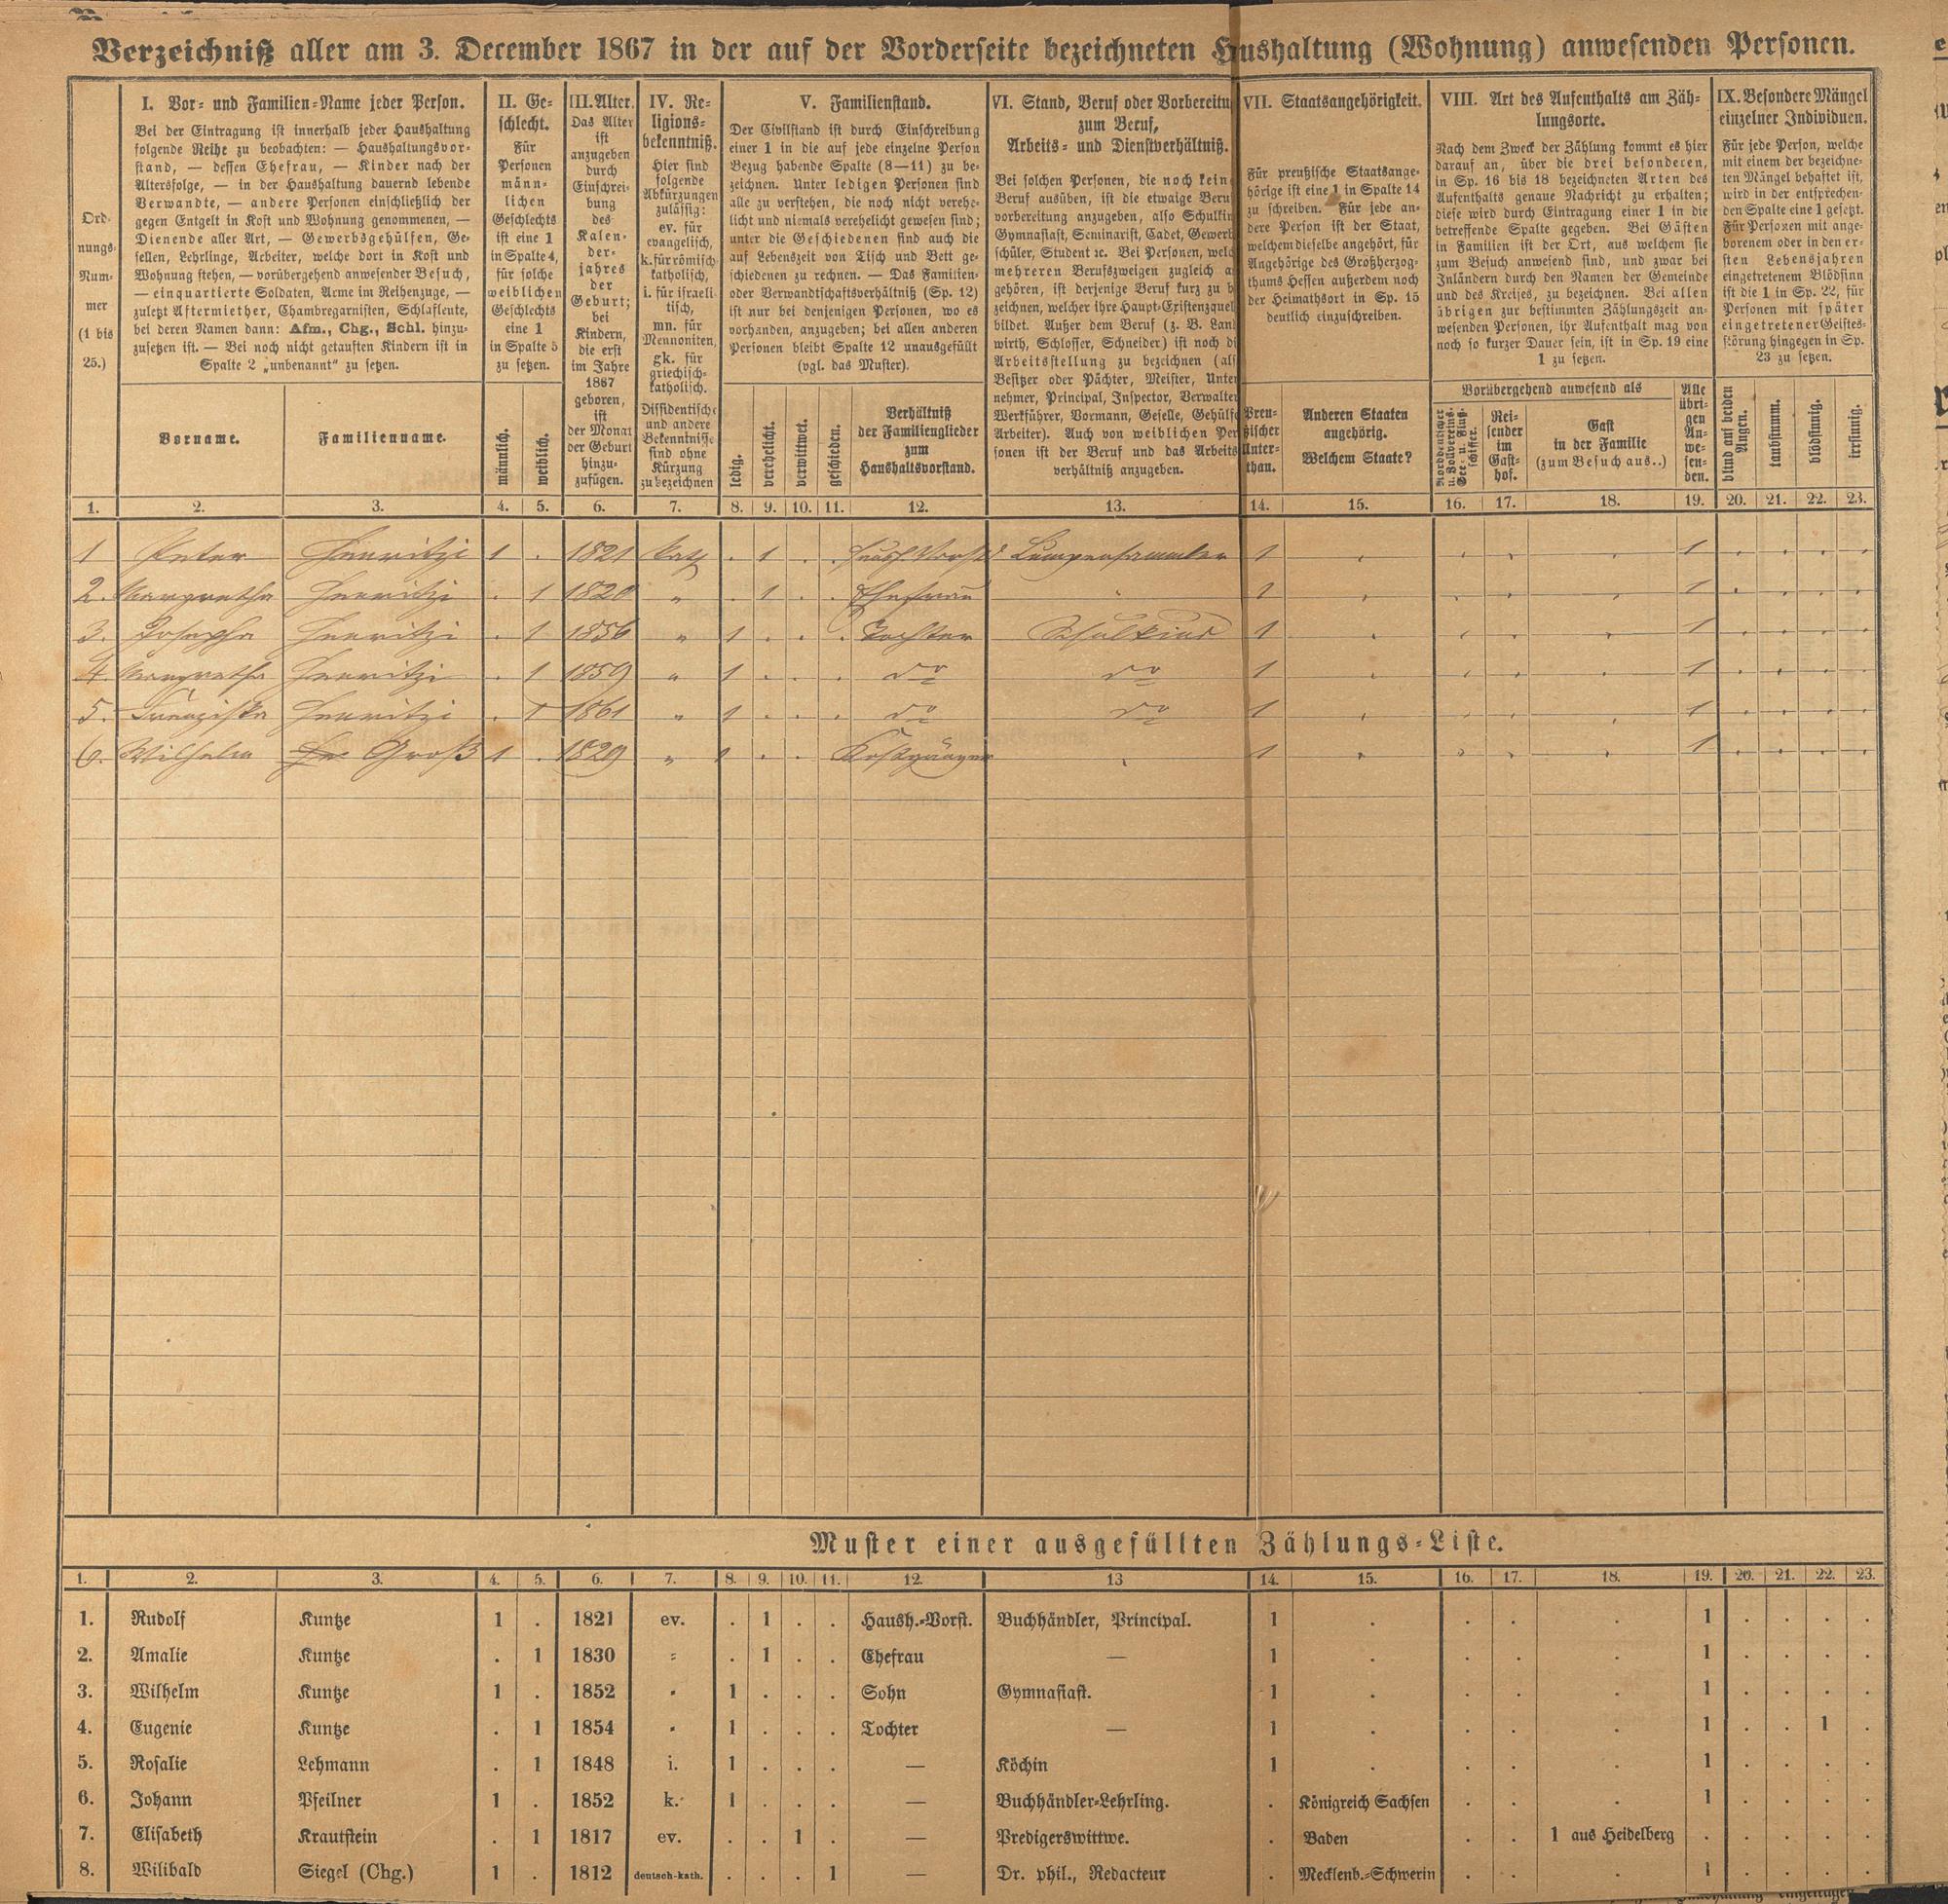 Verzeichniß aller am 3. December 1867 in der auf der Vorderseite bezeichneten Haushaltung (Wohnung) anwesenden Personen.
Ord-
nungs-
Num-
mer
(1 bis
25.)
I. Vor- und Familien-Name jeder Person.
Bei der Eintragung ist innerhalb jeder Haushaltung
folgende Reihe zu beobachten: — Haushaltungsvor-
stand, — dessen Ehefrau, — Kinder nach der
Altersfolge, — in der Haushaltung dauernd lebende
Verwandte, — andere Personen einschließlich der
gegen Entgelt in Kost und Wohnung genommenen, —
Dienende aller Art, — Gewerbsgehülfen, Ge-
sellen, Lehrlinge, Arbeiter, welche dort in Kost und
Wohnung stehen, — vorübergehend anwesender Besuch,
— einquartierte Soldaten, Arme im Reihenzuge, —
zuletzt Aftermiether, Chambregarnisten, Schlafleute,
bei deren Namen dann: Afm., Chg., Schl. hinzu-
zusetzen ist. — Bei noch nicht getauften Kindern ist in
Spalte 2 „unbenannt“ zu setzen.
Vorname.
Familienname.
II. Ge-
schlecht.
Für
Personen
männ-
lichen
Geschlechts
ist eine 1
in Spalte 4,
für solche
weiblichen
Geschlechts
eine 1
in Spalte 5
zu setzen.
männlich.
weiblich.
III. Alter.
Das Alter
ist
anzugeben
durch
Einschrei-
bung
des
Kalen-
der-
jahres
der
Geburt;
bei
Kindern,
die erst
im Jahre
1867
geboren,
ist
der Monat
der Geburt
hinzu-
zufügen.
IV. Re-
ligions-
bekenntniß.
Hier sind
folgende
Abkürzungen
zulässig:
ev. für
evangelisch,
k. für römisch-
katholisch,
i. für israeli-
tisch,
mn. für
Mennoniten,
gk. für
griechisch-
katholisch.
Dissidentische
und andere
Bekenntnisse
sind ohne
Kürzung
zu bezeichnen
V. Familienstand.
Der Civilstand ist durch Einschreibung
einer 1 in die auf jede einzelne Person
Bezug habende Spalte (8—11) zu be-
zeichnen. Unter ledigen Personen sind
alle zu verstehen, die noch nicht verehe-
licht und niemals verehelicht gewesen sind;
unter die Geschiedenen sind auch die
auf Lebenszeit von Tisch und Bett ge-
schiedenen zu rechnen. — Das Familien-
oder Verwandtschaftsverhältniß (Sp. 12)
ist nur bei denjenigen Personen, wo es
vorhanden, anzugeben; bei allen anderen
Personen bleibt Spalte 12 unausgefüllt
(vgl. das Muster).
ledig.
verehelicht.
verwittwet.
geschieden.
Verhältniß
der Familienglieder
zum
Haushaltsvorstand.
VI. Stand, Beruf oder Vorbereitu
zum Beruf,
Arbeits- und Dienstverhältniß.
Bei solchen Personen, die noch kein
Beruf ausüben, ist die etwaige Beruf
vorbereitung anzugeben, also Schulkin
Gymnasiast, Seminarist, Cadet, Gewerb
schüler, Student ꝛc. Bei Personen, welc
mehreren Berufszweigen zugleich a
gehören, ist derjenige Beruf kurz zu b
zeichnen, welcher ihre Haupt-Existenzquel
bildet. Außer dem Beruf (z. B. Land
wirth, Schlosser, Schneider) ist noch di
Arbeitsstellung zu bezeichnen (als
Besitzer oder Pächter, Meister, Unter
nehmer, Principal, Inspector, Verwalter
Werkführer, Vormann, Geselle, Gehülfe
Arbeiter). Auch von weiblichen Per
sonen ist der Beruf und das Arbeits
verhältniß anzugeben.
VII. Staatsangehörigkeit.
Für preußische Staatsange-
hörige ist eine 1 in Spalte 14
zu schreiben. Für jede an-
dere Person ist der Staat,
welchem dieselbe angehört, für
Angehörige des Großherzog-
thums Hessen außerdem noch
der Heimathsort in Sp. 15
deutlich einzuschreiben.
Preu-
ßischer
Unter-
than.
Anderen Staaten
angehörig.
Welchem Staate?
VIII. Art des Aufenthalts am Zäh-
lungsorte.
Nach dem Zweck der Zählung kommt es hier
darauf an, über die drei besonderen,
in Sp. 16 bis 18 bezeichneten Arten des
Aufenthalts genaue Nachricht zu erhalten;
diese wird durch Eintragung einer 1 in die
betreffende Spalte gegeben. Bei Gästen
in Familien ist der Ort, aus welchem sie
zum Besuch anwesend sind, und zwar bei
Inländern durch den Namen der Gemeinde
und des Kreises, zu bezeichnen. Bei allen
übrigen zur bestimmten Zählungszeit an-
wesenden Personen, ihr Aufenthalt mag von
noch so kurzer Dauer sein, ist in Sp. 19 eine
1 zu setzen.
Vorübergehend anwesend als
Norddeutscher
u. Zollvereins-
See- u. Fluß-
schiffer.
Rei-
sender
im
Gast-
hof.
Gast
in der Familie
(zum Besuch aus..)
Alle
übri-
gen
An-
we-
sen-
den.
IX. Besondere Mängel
einzelner Individuen.
Für jede Person, welche
mit einem der bezeichne-
ten Mängel behaftet ist,
wird in der entsprechen-
den Spalte eine 1 gesetzt.
Für Personen mit ange-
borenem oder in den er-
sten Lebensjahren
eingetretenem Blödsinn
ist die 1 in Sp. 22, für
Personen mit später
eingetretener Geistes-
störung hingegen in Sp.
23 zu setzen.
blind auf beiden
Augen.
taubstumm.
blödsinnig.
irrsinnig.
1. 2. 3. 4. 5. 6. 7. 8. 9. 10. 11. 12. 13. 14. 15. 16. 17. 18. 19. 20. 21. 22. 23.
1 Peter Henritzi 1 . 1821 kath . 1 . . Haush. Vorst. Lumpensammler 1 . . . . 1 . . . .
2. Margretha Henritzi . 1 1820 " . 1 . . Ehefrau . 1 . . . . 1 . . . .
3. Josepha Henritzi . 1 1856 " 1 . . . Tochter Schulkind 1 . . . . 1 . . . .
4. Margretha Henritzi . 1 1859 " 1 . . . do do 1 . . . . 1 . . . .
5. Franziska Henritzi . 1 1861 " 1 . . . do do 1 . . . . 1 . . . .
6. Wilhelm Groß 1 . 1829 " 1 . . Kostgänger . 1 . . . . 1 . . . .
Muster einer ausgefüllten Zählungs-Liste.
1. 2. 3. 4. 5. 6. 7. 8. 9. 10. 11. 12. 13 14. 15. 16. 17. 18. 19. 20. 21. 22. 23.
1. Rudolf Kuntze 1 . 1821 ev. . 1 . . Haush.-Vorst. Buchhändler, Principal. 1 . . . . 1 . . . .
2. Amalie Kuntze . 1 1830 " . 1 . . Ehefrau — 1 . . . . 1 . . . .
3. Wilhelm Kuntze 1 . 1852 " 1 . . . Sohn Gymnasiast. 1 . . . . 1 . . . .
4. Eugenie Kuntze . 1 1854 " 1 . . . Tochter — 1 . . . . 1 . . 1 .
5. Rosalie Lehmann . 1 1848 i. 1 . . . — Köchin 1 . . . . 1 . . . .
6. Johann Pfeilner 1 . 1852 k. 1 . . . — Buchhändler-Lehrling. . Königreich Sachsen . . . 1 . . . .
7. Elisabeth Krautstein . 1 1817 ev. . . 1 . — Predigerswittwe. . Baden . . 1 aus Heidelberg . . . . .
8. Wilibald Siegel (Chg.) 1 . 1812 deutsch-kath. . . . 1 — Dr. phil., Redacteur . Mecklenb.-Schwerin . . . 1 . . . .